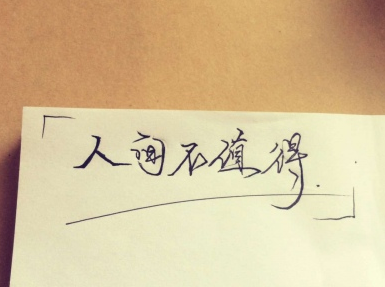 「人间不值得.」